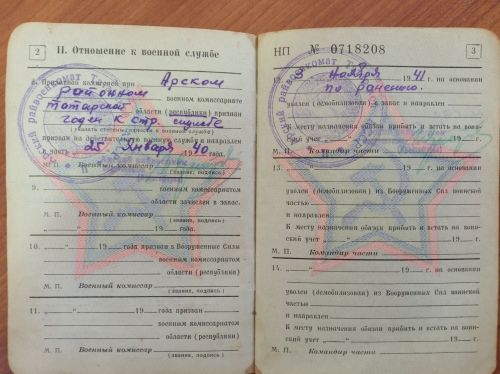 2
II. Отношение к военной службе
8. Призывной комиссией при Арском
районном военном комиссариате
татарской области (республики)
годен к стр. службе
(указать степень годности к военной службе)
призван на действительную военную службу и направлен
в часть „25" Января 1940 года.
М. П. Военный комиссар
(звание, подпись)
9.
военным комиссариатом
области зачислен в запас.
М. П. Военный комиссар
(звание, подпись)
„ " 19 года.
10. „ " 19 года призван в Вооруженные Силы
военным комиссариатом
области (республики)
М. П. Военный комиссар
(звание, подпись)
11. „ " 19 г. года призван
военным комиссариатом
области (республики)
М. П. Военный комиссар
(звание, подпись)
НП № 0718208
3
12. 3 ноября 1941 г. на основании
по ранению.
уволен (демобилизован) в запас и направлен
К месту жительства обязан прибыть и встать на воин-
ский учет
М. П. Командир части
13. „ " 19 г. на основании
уволен (демобилизован) из Вооруженных Сил воинской
частью
и направлен
К месту назначения обязан прибыть и встать на воин-
ский учет „ " 19 г.
М. П. Командир части
14. „ " 19 г. на основании
уволен (демобилизован) из Вооруженных Сил воинской
частью
и направлен
К месту назначения обязан прибыть и встать на воин-
ский учет „ " 19 г.
М. П. Командир части